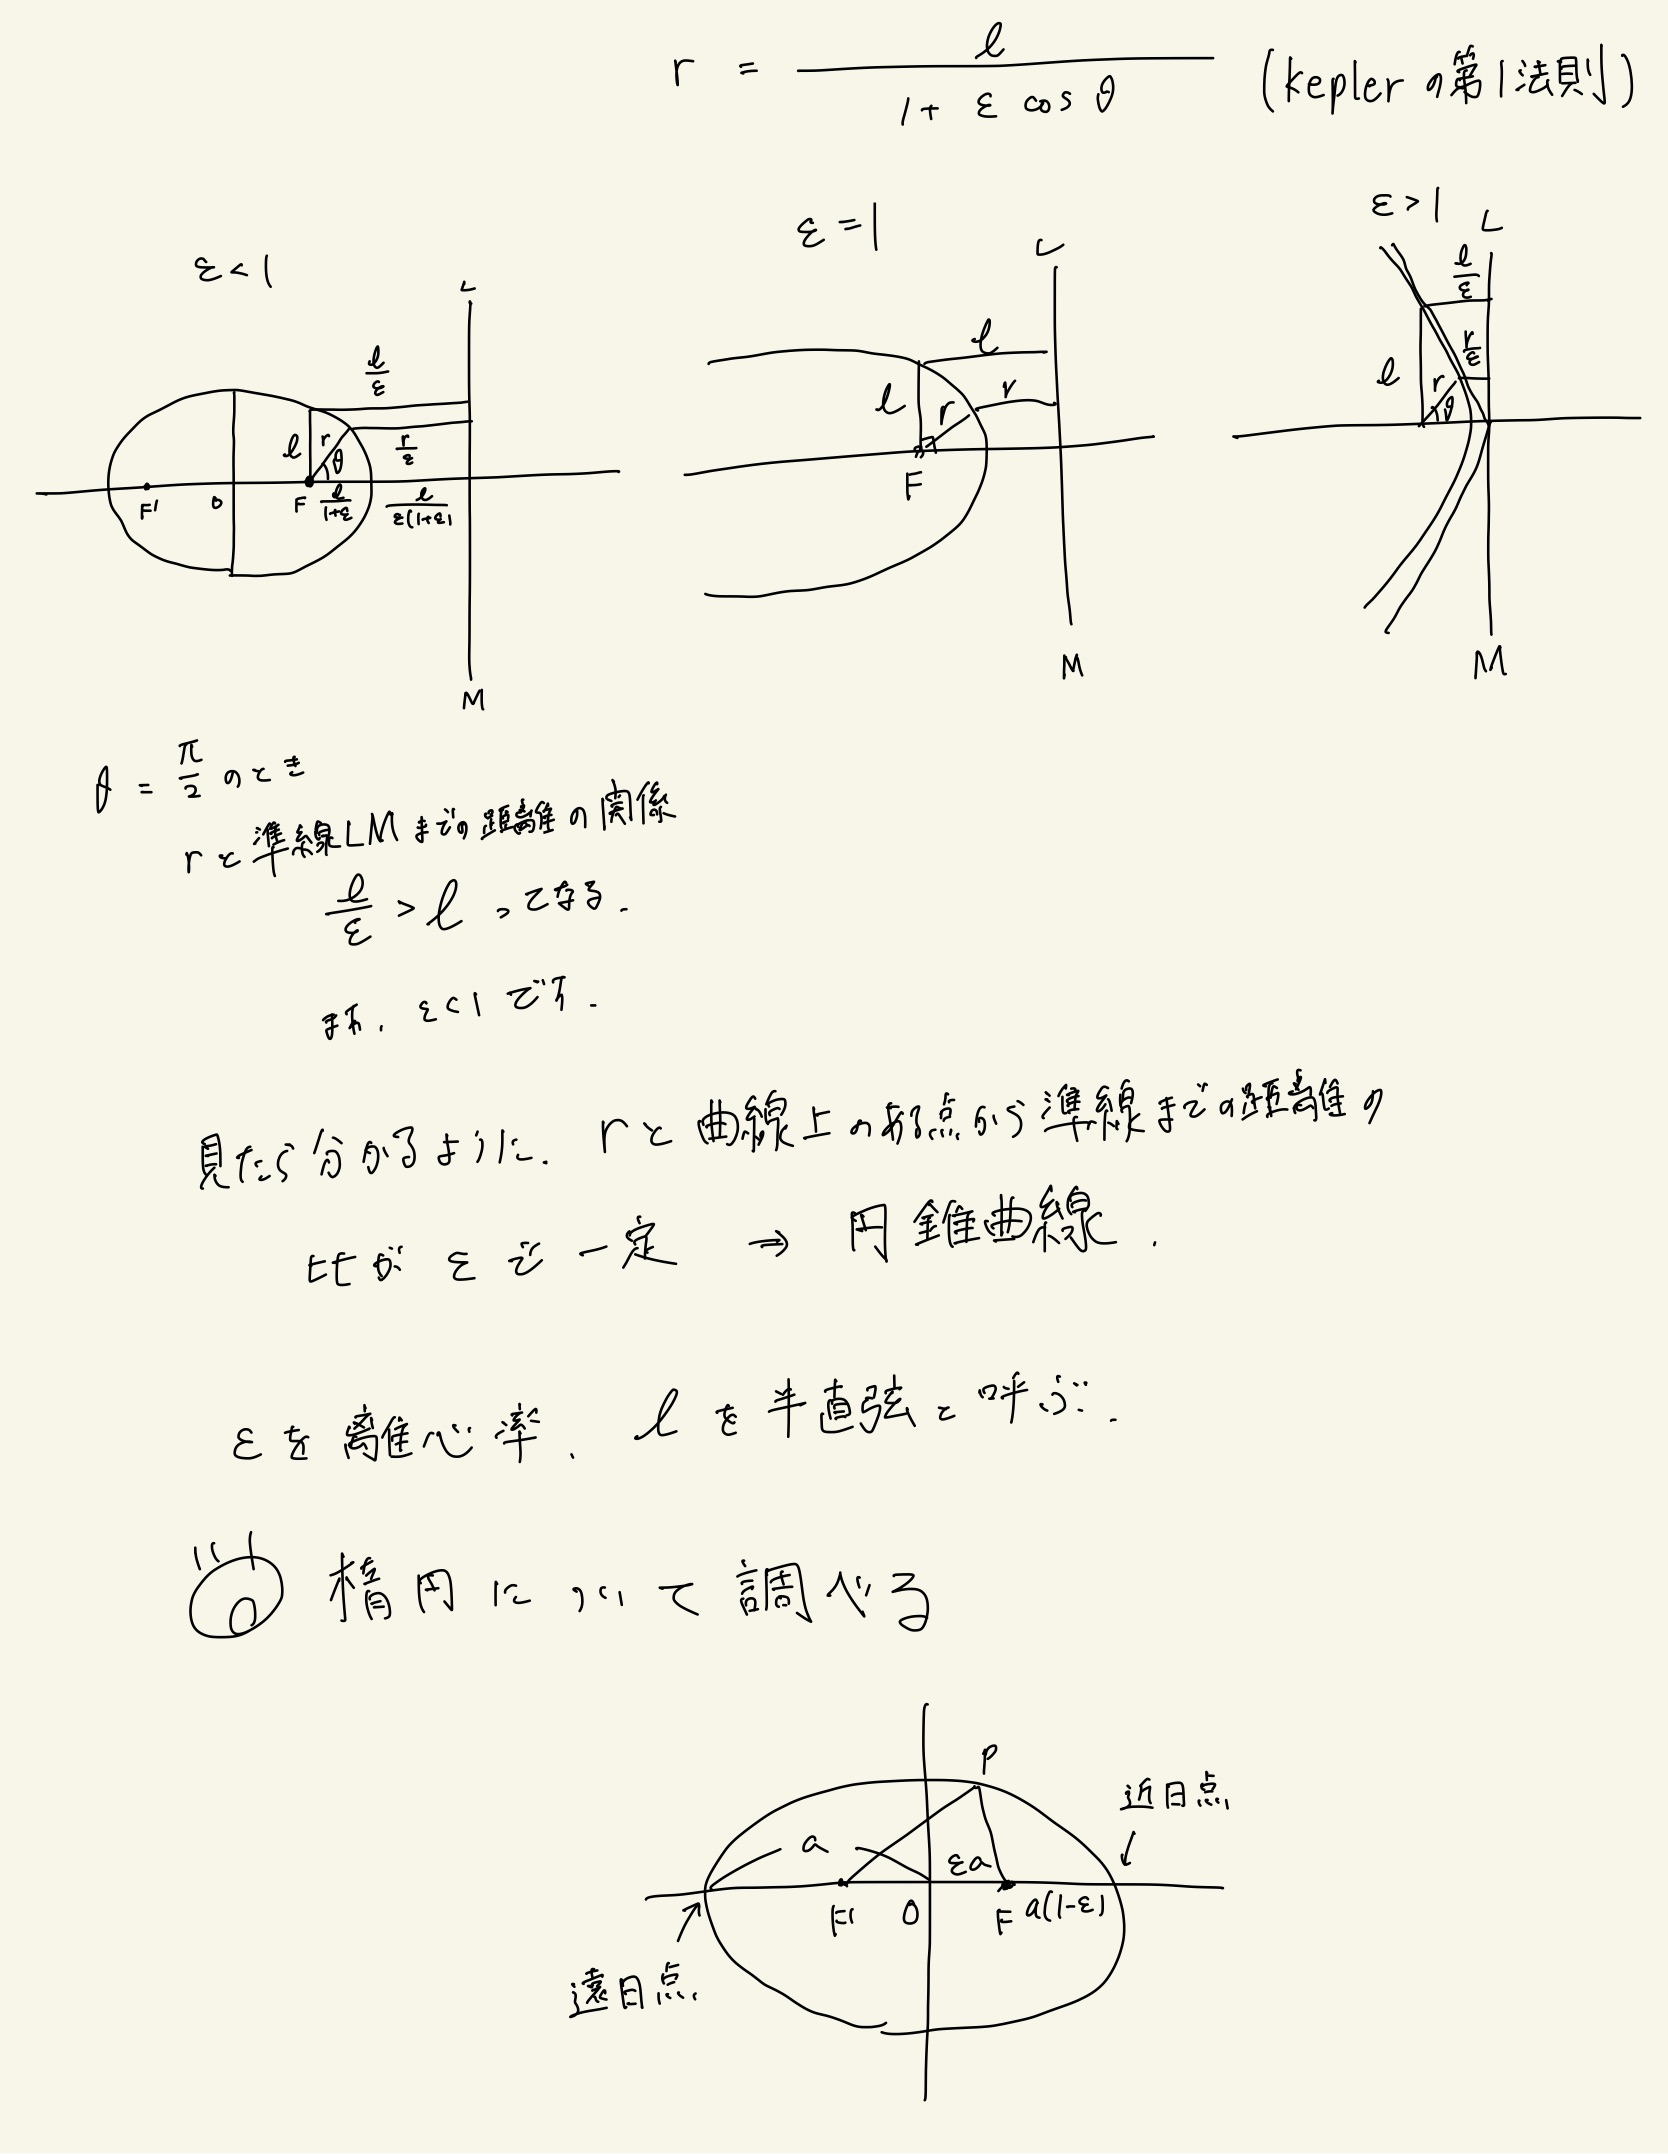 r = l / (1 + ε cos θ) (keplerの第1法則)
ε < 1
ε = 1
ε > 1
L
l/ε
l
r
θ
r/ε
F'
O
F
l/(1+ε)
l/(ε(1+ε)
M
L
l
l
r
r
F
M
L
l/ε
r/ε
l
r
θ
M
θ = π/2 のとき
rと準線LMまでの距離の関係
l/ε > l ってなる.
また. ε<1 です.
見たら分かるように. rと曲線上のある点から準線までの距離の
比が ε で 一定 ⇒ 円錐曲線.
εを離心率. lを半直弦と呼ぶ.
楕円について調べる
P
近日点
a
εa
F'
O
F
a(1-ε)
遠日点